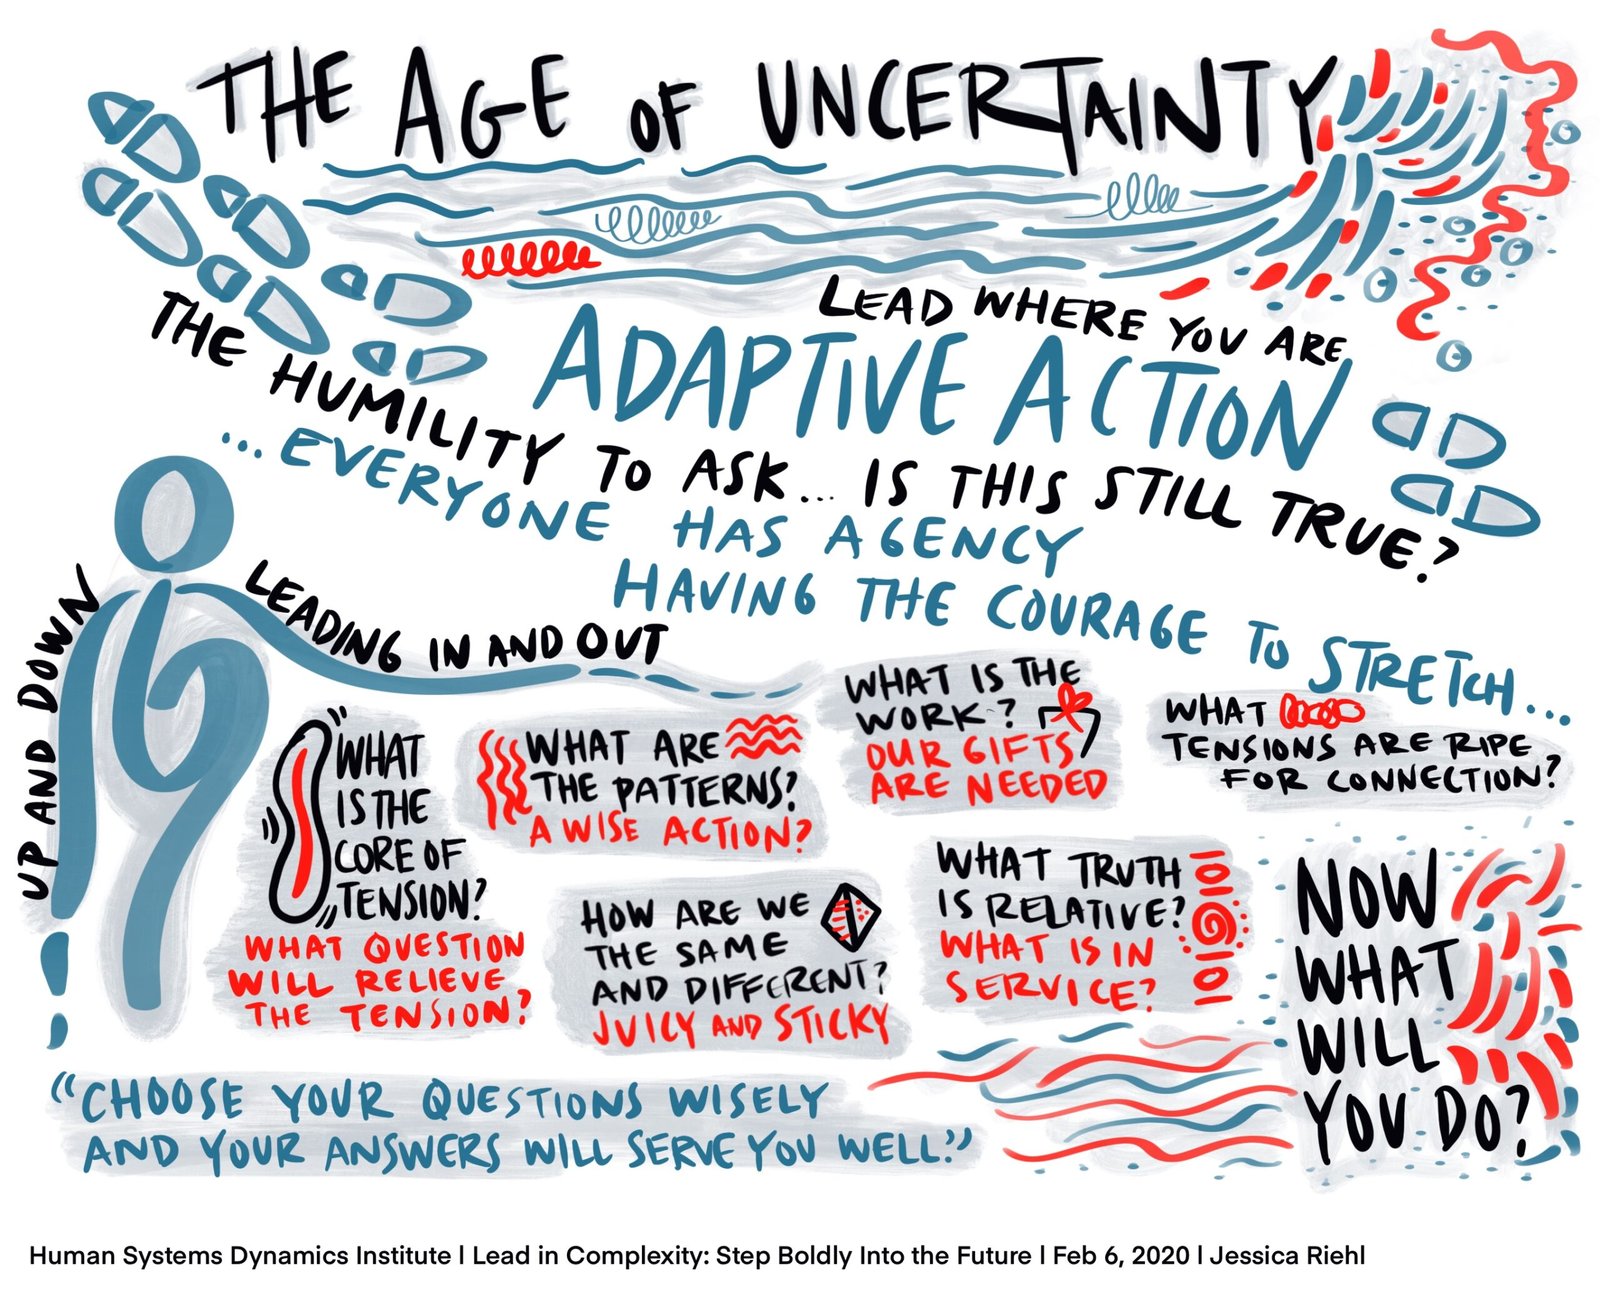 THE AGE OF UNCERTAINTY
LEAD WHERE YOU ARE
ADAPTIVE ACTION
THE HUMILITY TO ASK... IS THIS STILL TRUE?
...EVERYONE HAS AGENCY
HAVING THE COURAGE TO STRETCH...
UP AND DOWN
LEADING IN AND OUT
WHAT
IS THE
CORE OF
TENSION?
WHAT QUESTION
WILL RELIEVE
THE TENSION?
WHAT ARE
THE PATTERNS?
A WISE ACTION?
HOW ARE WE
THE SAME
AND DIFFERENT?
JUICY AND STICKY
WHAT IS THE
WORK?
OUR GIFTS
ARE NEEDED
WHAT TRUTH
IS RELATIVE?
WHAT IS IN
SERVICE?
WHAT
TENSIONS ARE RIPE
FOR CONNECTION?
NOW
WHAT
WILL
YOU DO?
"CHOOSE YOUR QUESTIONS WISELY
AND YOUR ANSWERS WILL SERVE YOU WELL."
Human Systems Dynamics Institute | Lead in Complexity: Step Boldly Into the Future | Feb 6, 2020 | Jessica Riehl